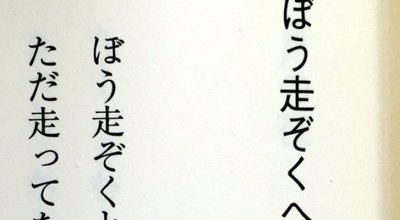 ぼう走ぞくへ
ぼう走ぞく
ただ走って